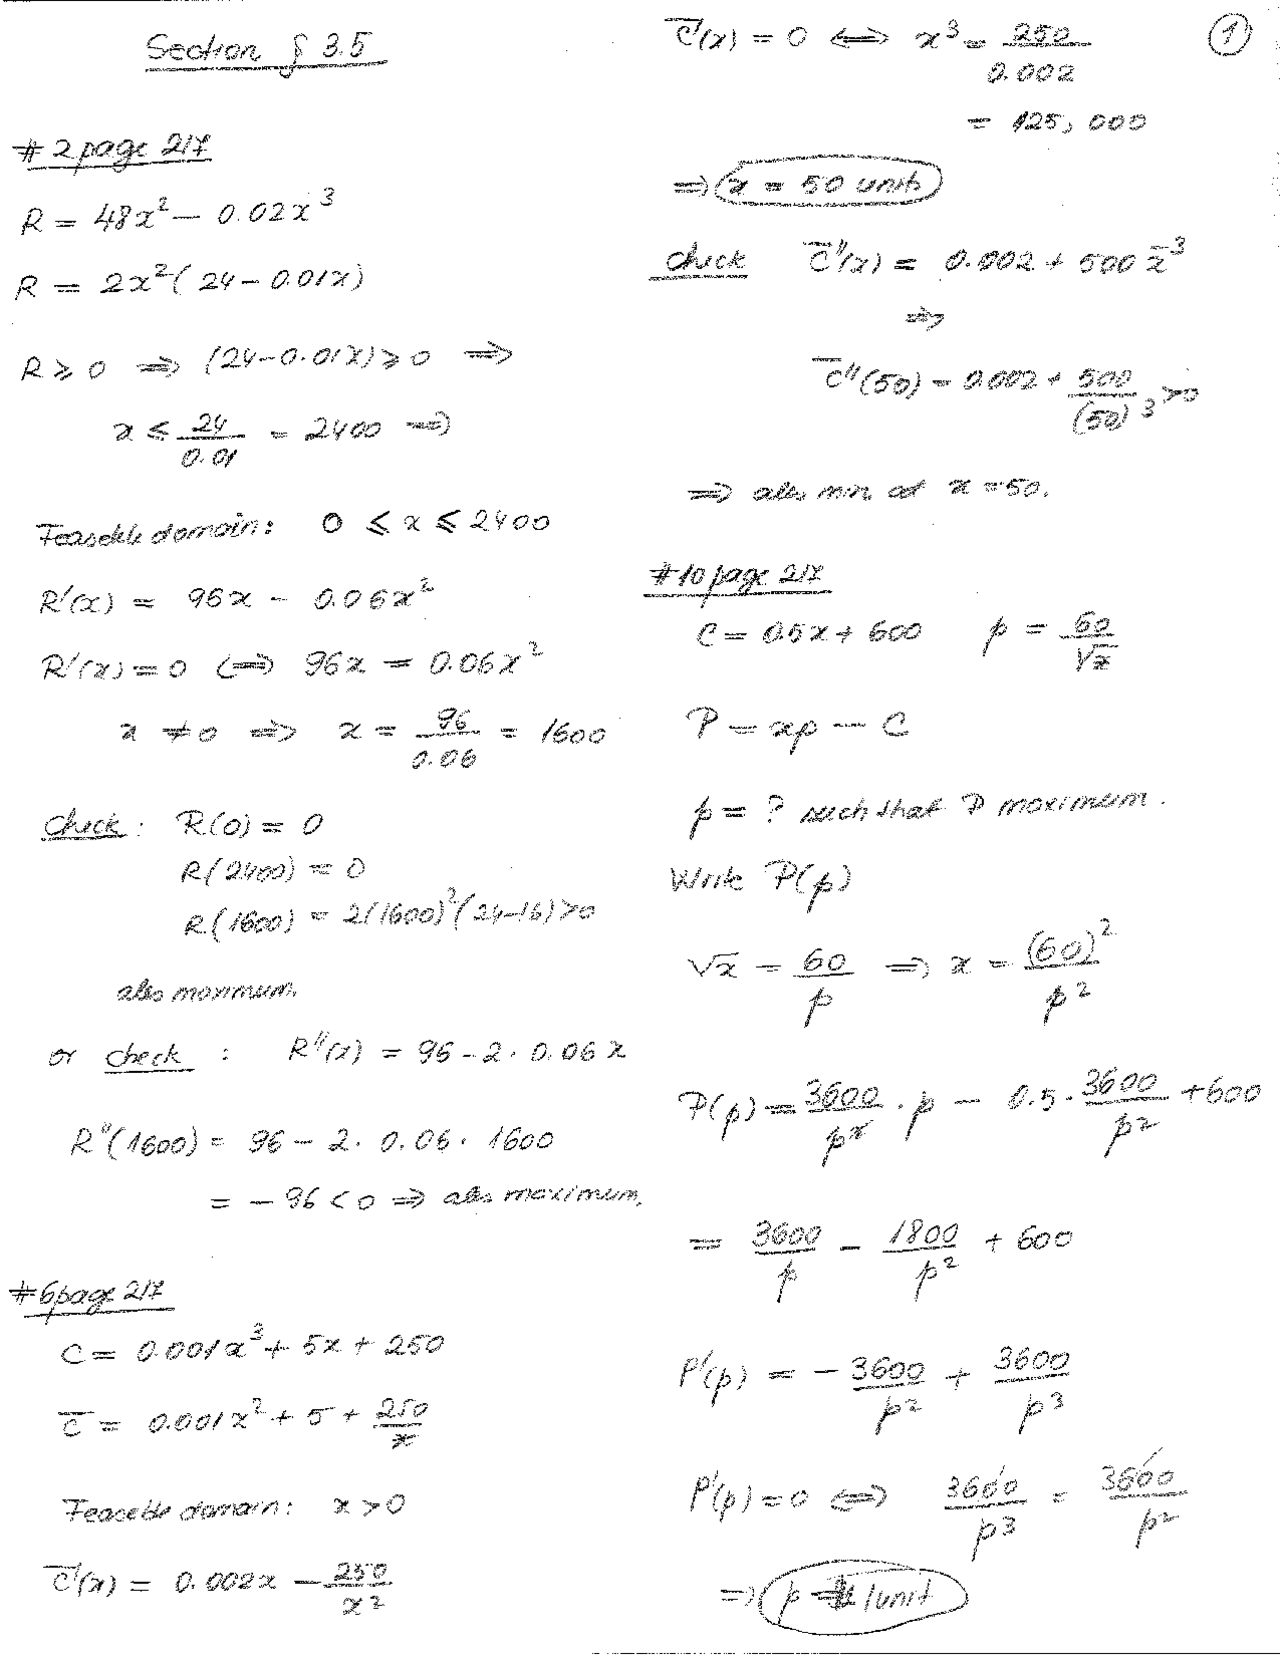 Section § 3.5
# 2 page 217
R = 48x² − 0.02x³
R = 2x²(24 − 0.01x)
R ⩾ 0 ⟹ (24−0.01x) ⩾ 0 ⟹
x ⩽ 24/0.01 = 2400 ⟹
Feaseble domain: 0 ⩽ x ⩽ 2400
R'(x) = 96x − 0.06x²
R'(x) = 0 ⟺ 96x = 0.06x²
x ≠ 0 ⟹ x = 96/0.06 = 1600
Check: R(0) = 0
R(2400) = 0
R(1600) = 2(1600)²(24−16)>0
abs maximum.
or check : R''(x) = 96 − 2 · 0.06x
R''(1600) = 96 − 2 · 0.06 · 1600
= − 96 < 0 ⟹ abs maximum.
# 6 page 217
C = 0.001x³ + 5x + 250
C̅ = 0.001x² + 5 + 250/x
Feaseble domain: x > 0
C̅'(x) = 0.002x − 250/x²
①
C̅'(x) = 0 ⟺ x³ = 250/0.002
= 125,000
⟹ x = 50 units
Check C̅''(x) = 0.002 + 500x⁻³
⟹
C̅''(50) = 0.002 + 500/(50)³ >0
⟹ abs min. at x = 50.
# 10 page 217
C = 0.5x + 600 p = 60/√x
P = xp − C
p = ? such that P maximum.
Write P(p)
√x = 60/p ⟹ x = (60)²/p²
P(p) = 3600/p² · p − 0.5 · 3600/p² + 600
= 3600/p − 1800/p² + 600
P'(p) = − 3600/p² + 3600/p³
P'(p) = 0 ⟺ 3600/p³ = 3600/p²
⟹ p = /unit